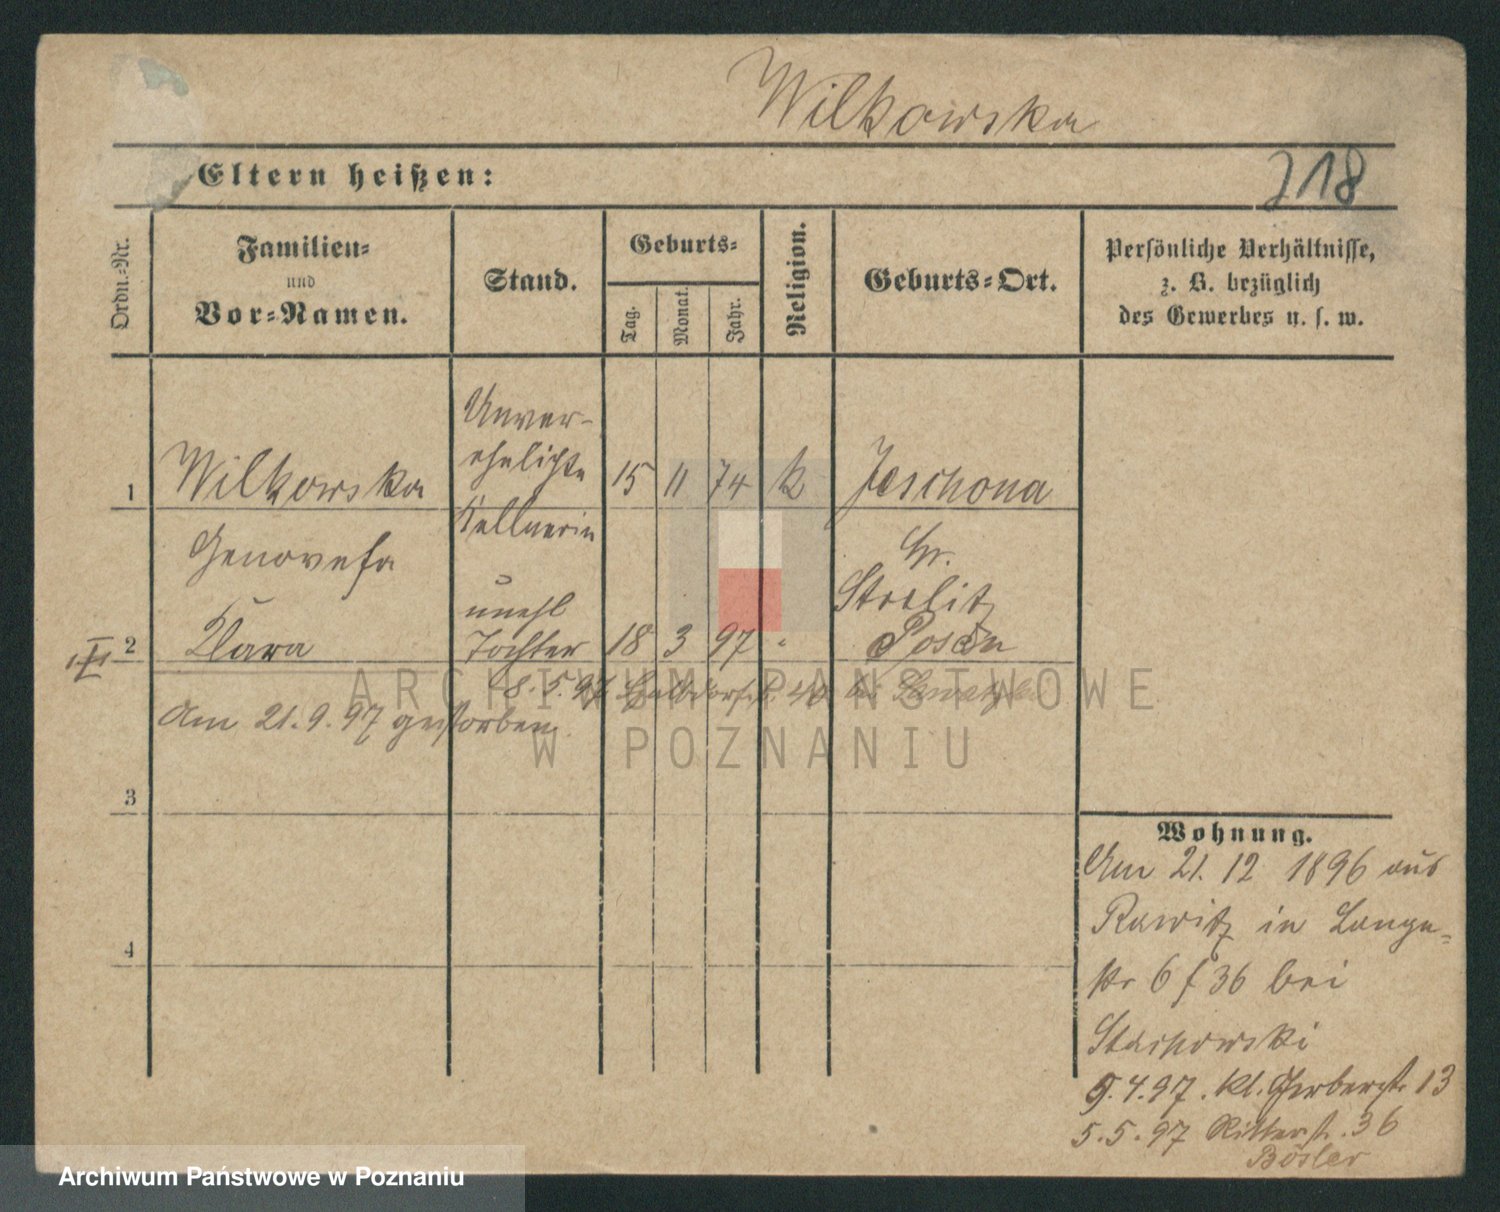 Wilkowska
Eltern heißen:
218
Ordn.-Nr.
Familien-
und
Vor-Namen.
Stand.
Geburts-
Tag.
Monat.
Jahr.
Religion.
Geburts-Ort.
Persönliche Verhältnisse,
z. B. bezüglich
des Gewerbes u. s. w.
Unver-
ehelichte
1 Wilkowska
15 11 74 k Jeschona
Kellnerin
Genovefa
Gr.
Strelitz
unehl
2 Klara
Tochter 18 3 97 " Posen
8.5.97 40 bei
Am 21.9.97 gestorben.
ARCHIWUM PAŃSTWOWE
W POZNANIU
3
4
Wohnung.
Am 21. 12 1896 aus
Rawitz in Lange-
str 6 f 36 bei
Stachowski
5.4.97. kl. Gerberstr 13
5.5.97 Ritterstr. 36
Bösler
Archiwum Państwowe w Poznaniu